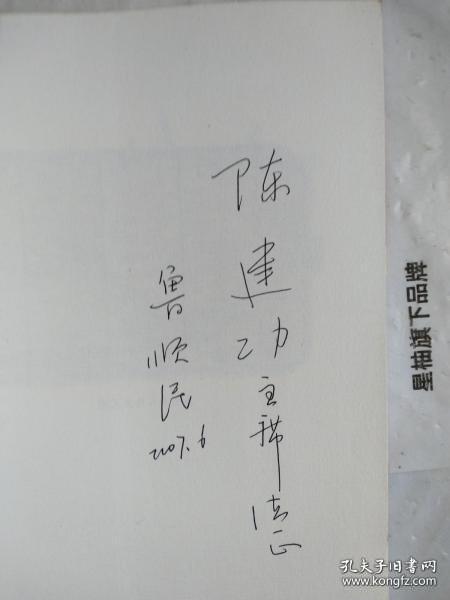 陈建功主席法正
鲁顺民
2007.6
星柚旗下品牌
孔夫子旧书网
www.kongfz.com